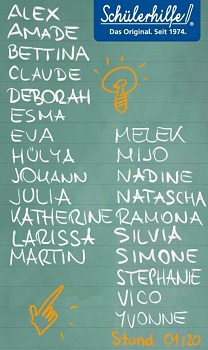 Schülerhilfe!
Das Original. Seit 1974.
ALEX
AMADE
BETTINA
CLAUDE
DEBORAH
ESMA
EVA
HÜLYA
JOHANN
JULIA
KATHERINE
LARISSA
MARTIN
MELEK
MIJO
NADINE
NATASCHA
RAMONA
SILVIA
SIMONE
STEPHANIE
VICO
YVONNE
Stand 01/20